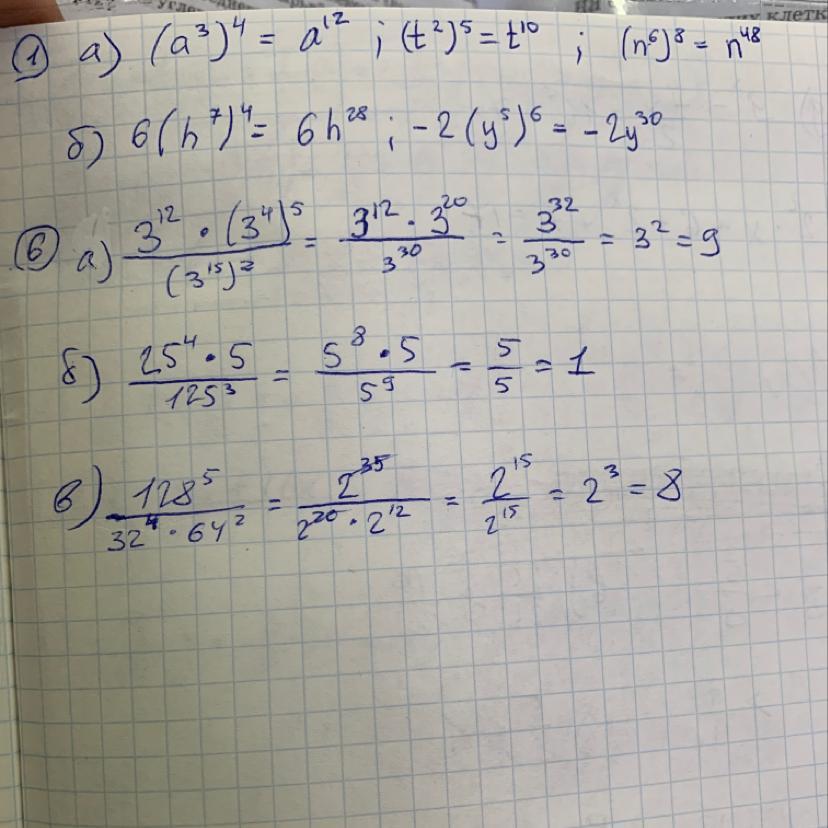 клетк
① а) (a³)⁴ = a¹² ; (t²)⁵ = t¹⁰ ; (n⁶)⁸ = n⁴⁸
б) 6(h⁷)⁴ = 6h²⁸ ; -2(y⁵)⁶ = -2y³⁰
⑥ а) (3¹² · (3⁴)⁵)/((3¹⁵)²) = (3¹² · 3²⁰)/(3³⁰) = 3³²/3³⁰ = 3² = 9
б) (25⁴ · 5)/(125³) = (5⁸ · 5)/(5⁹) = 5/5 = 1
в) (128⁵)/(32⁴ · 64²) = (2³⁵)/(2²⁰ · 2¹²) = 2¹⁵/2¹⁵ = 2³ = 8